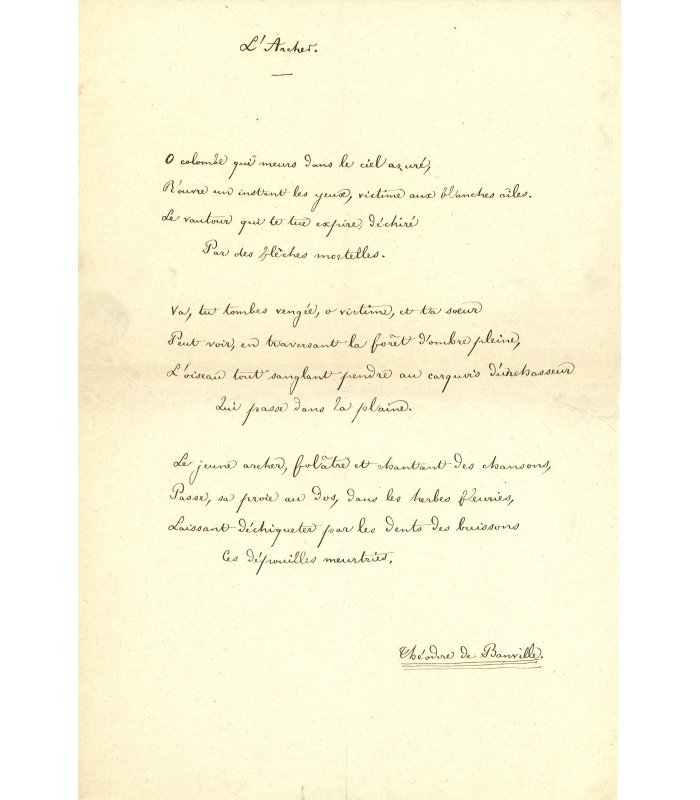 L'Archer.
O colombe qui meurs dans le ciel azuré,
R'ouvre un instant les yeux, victime aux blanches aîles.
Le vautour qui te tue expire, déchiré
Par des flêches mortelles.
Va, tu tombes vengée, o victime, et ta soeur
Peut voir, en traversant la forêt d'ombre pleine,
L'oiseau tout sanglant pendre au carquois d'un chasseur
Qui passe dans la plaine.
Le jeune archer, folâtre et chantant des chansons,
Passe, sa proie au dos, dans les herbes fleuries,
Laissant déchiqueter par les dents des buissons
Ces dépouilles meurtries.
Théodore de Banville.